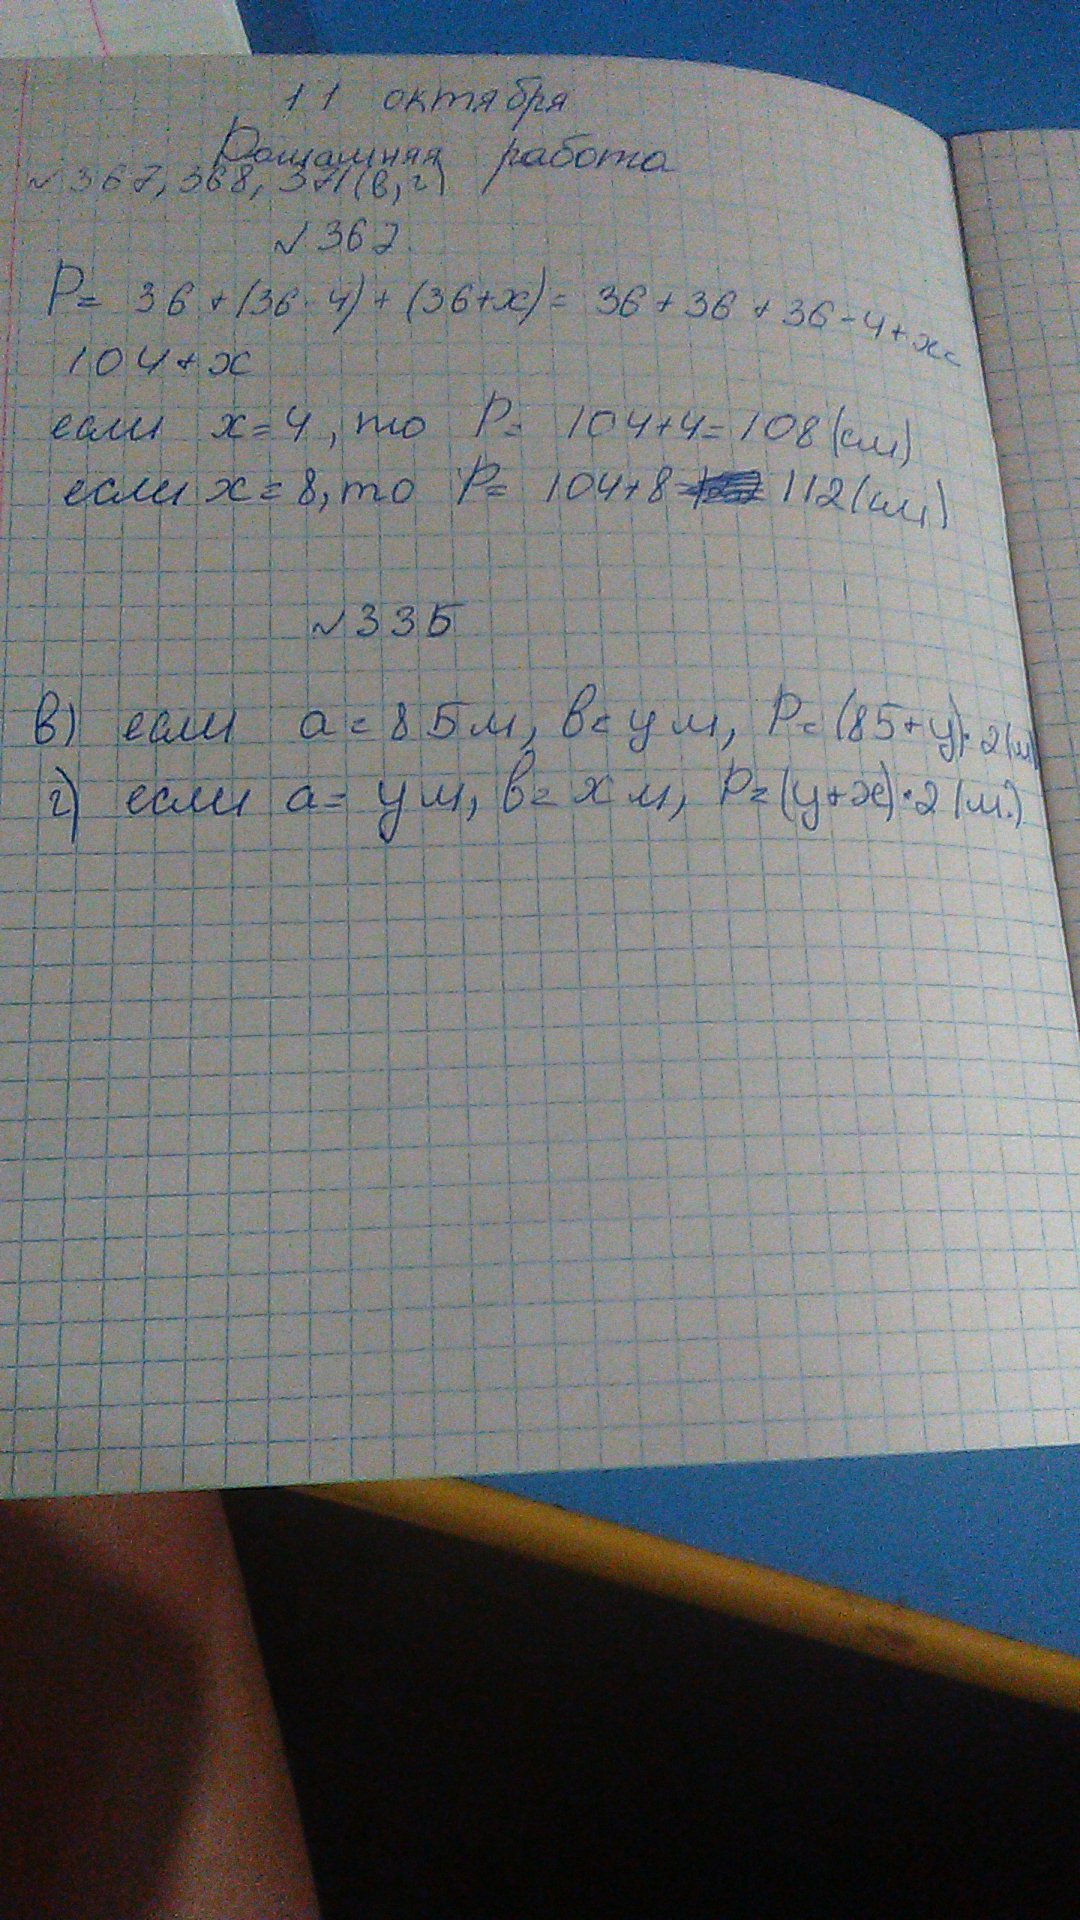 11 октября
Домашняя работа
№367, 368, 371(в,г)
№367
P= 36+(36-4)+(36+x)= 36+36+36-4+x=
104+x
если x=4, то P= 104+4=108(см)
если x=8, то P= 104+8= 112(см)
№335
в) если a=85м, в=ум, P=(85+у)·2(м)
г) если a=ум, в=хм, P=(у+х)·2(м.)